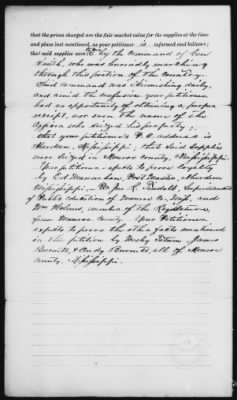 that the prices charged are the fair market value for the supplies at the time
and place last mentioned, as your petitioner is informed and believes;
that said supplies were taken by the Command of Gen
Smith, who was hurriedly marching
through this portion of the Country.
Said command was skirmishing daily,
and amid the confusion your petitioner
had no opportunity of obtaining a proper
receipt, nor even the name of the
officer who seized his property;
that your petitioner's P. O. address is
Aberdeen, Mississippi; that said supplies
were seized in Monroe County, Mississippi.
Your petitioner expects to prove loyalty
by E. O. Post Master, Aberdeen
Mississippi, - Jno R. Superintendent
of Public education of Monroe Co, Miss. and
Wm Holmes, member of the Legislature
from Monroe County. Your Petitioner
expects to prove the other facts mentioned
in this petition by Mosby James
Burnett, & Andy Burnett, all of Monroe
County, Mississippi.